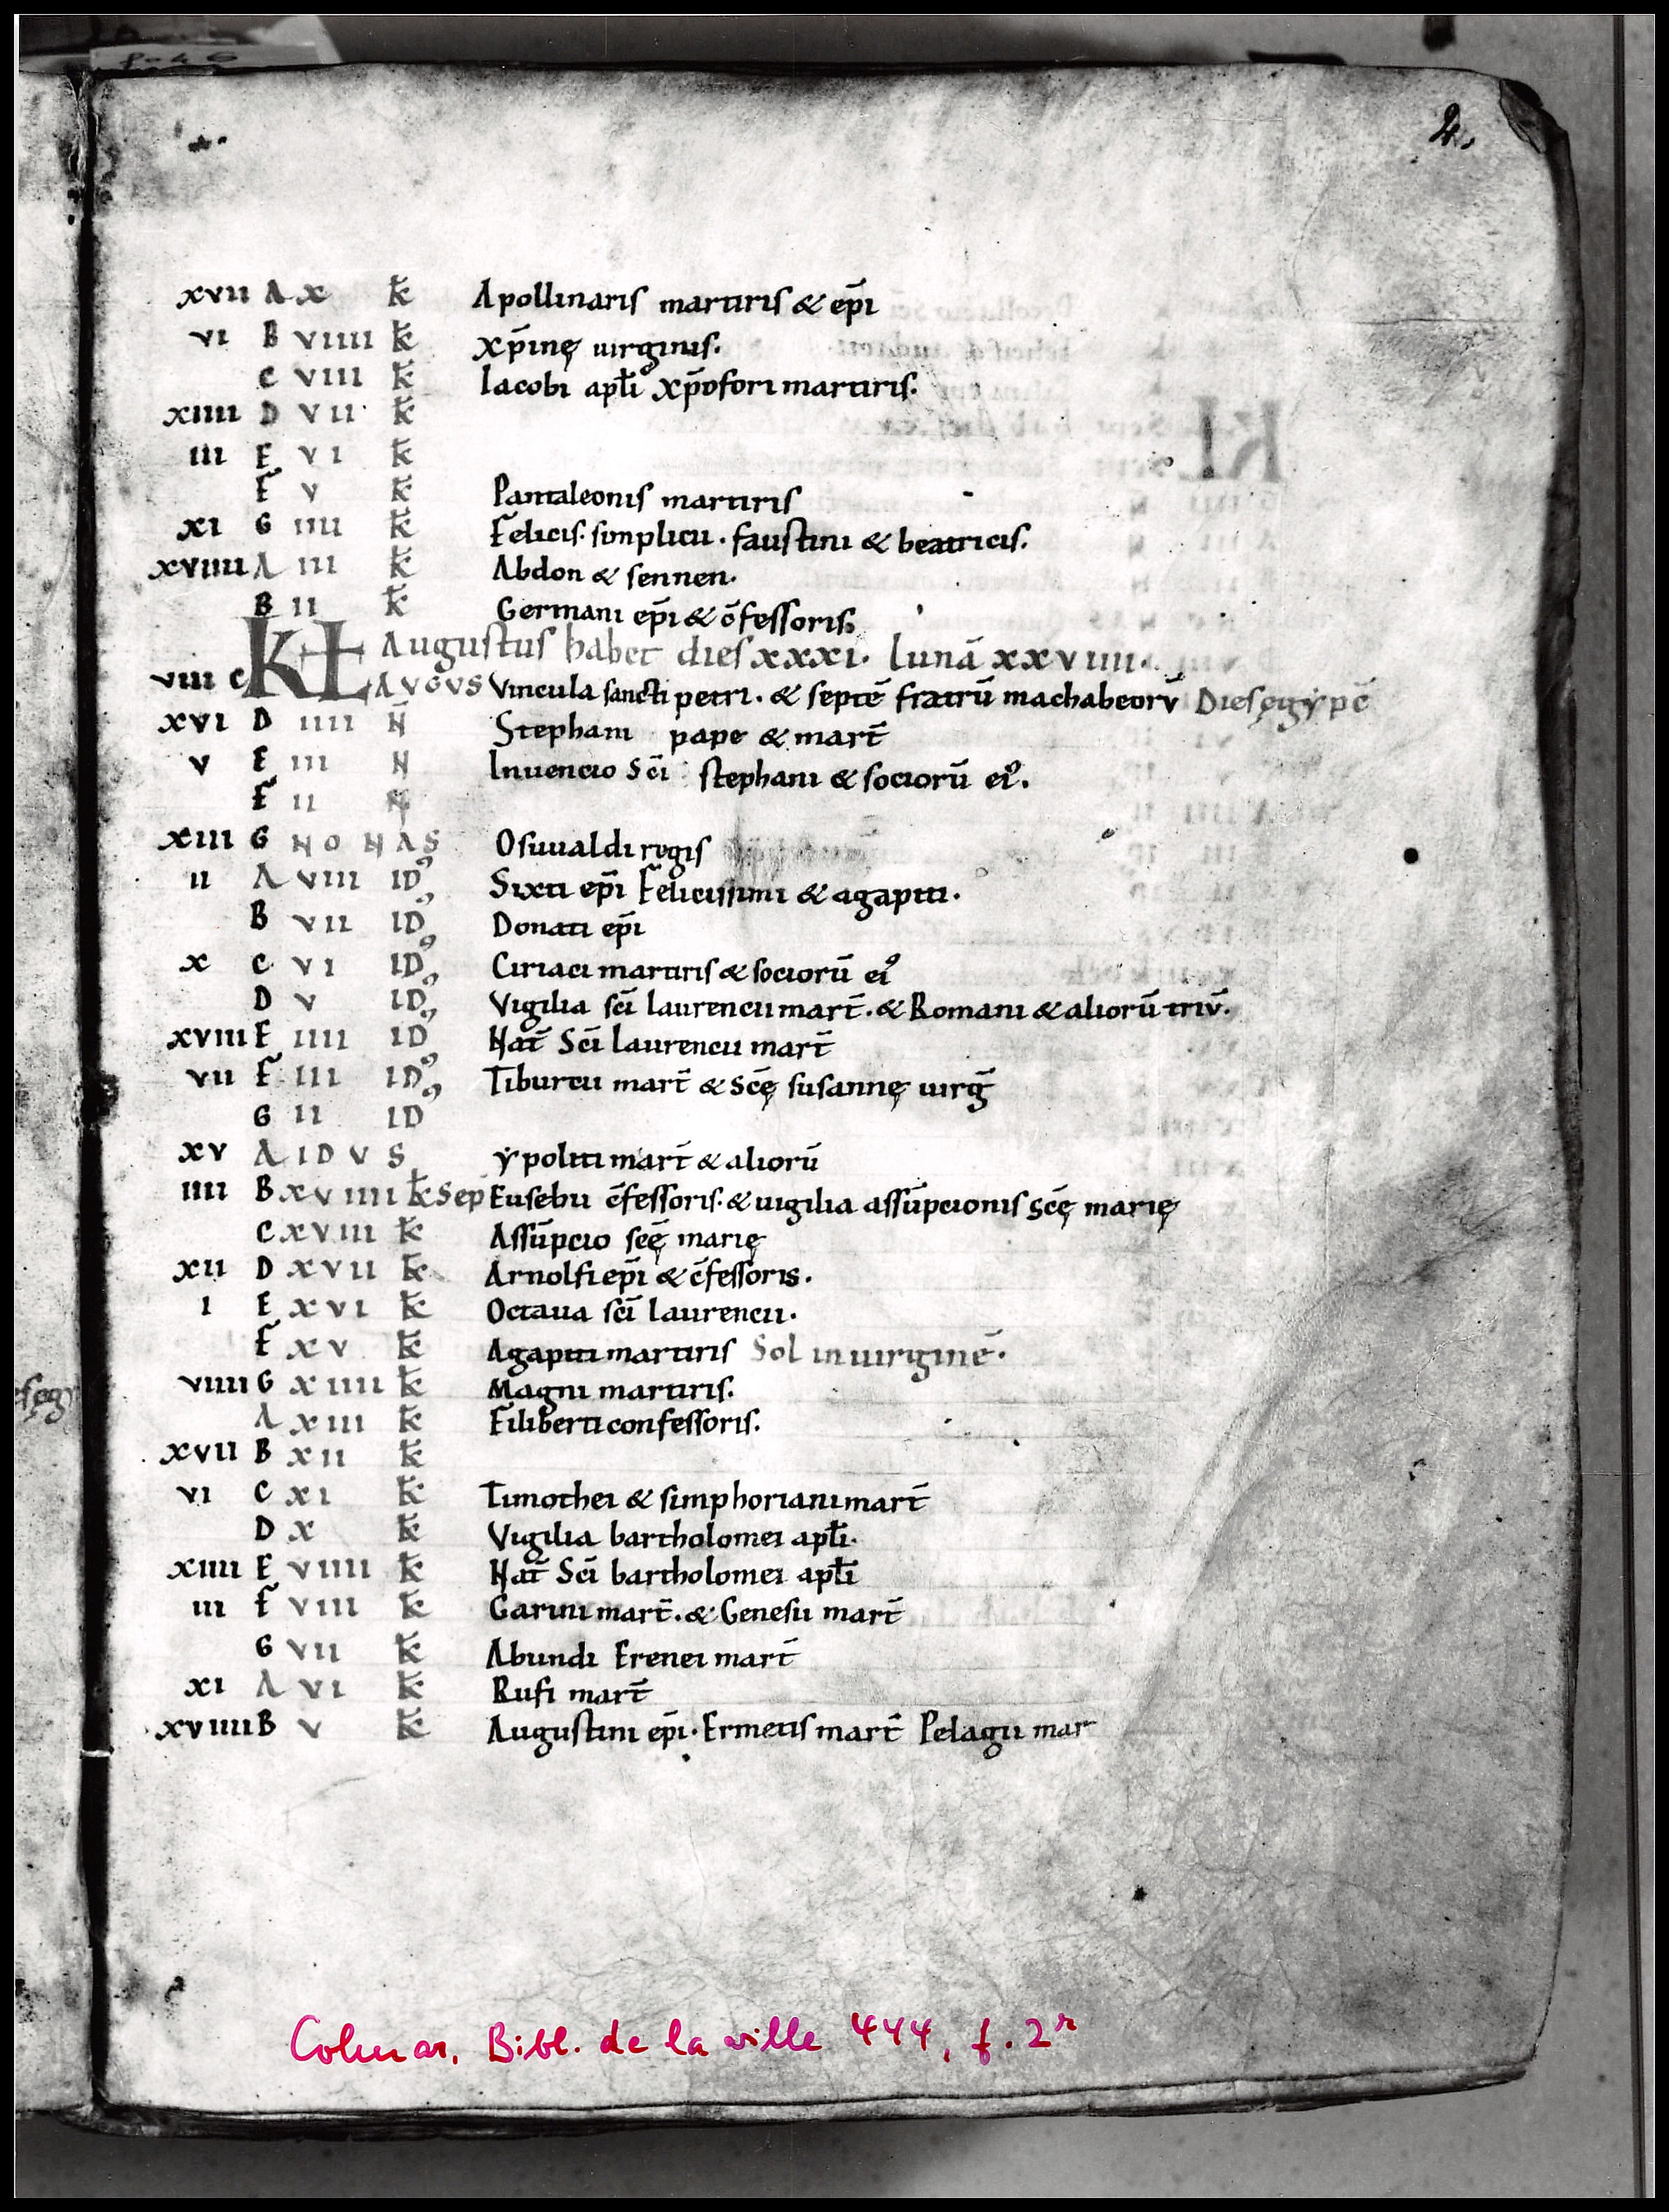 2.
xvii A x k̄ Apollinaris martiris & ep̄i
vi B viiii k̄ xp̄inę uirginis.
c viii k̄ Iacobi apłi xp̄ofori martiris.
xiiii D vii k̄
iii E vi k̄
F v k̄ Pantaleonis martiris
xi G iiii k̄ Felicis. simplicii. faustini & beatricis.
xviiii A iii k̄ Abdon & sennen.
B ii k̄ Germani ep̄i & c̄fessoris.
KŁ Augustus habet dies xxxi. lunā xxviiii.
viii c AVGVS Vincula sancti petri. & septē fratrū machabeorv̄ Dies ęgẏpc̄
xvi D iiii N̄ Stephani pape & mart̄
v E iii N Inuencio sc̄i stephani & sociorū ei᾿.
F ii N
xiii G NONAS Osuualdi regis
ii A viii ID᾿ Sixti ep̄i Felicissimi & agapiti.
B vii ID᾿ Donati ep̄i
x c vi ID᾿ Ciriaci martiris & sociorū ei᾿
D v ID᾿ Vigilia sc̄i laurencii mart̄. & Romani & aliorū triv̄.
xviii E iiii ID Nat̄ Sc̄i laurencii mart̄
vii F iii ID᾿ Tiburcii mart̄ & Sc̄ę susannę uirḡ
G ii ID
xv A IDVS ẏpoliti mart̄ & aliorū
iiii B xviiii k̄ Sep Eusebii c̄fessoris. & uigilia assūpcionis sc̄ę marię
c xviii k̄ Assūpcio sc̄ę marię
xii D xvii k̄ Arnolfi ep̄i & c̄fessoris.
i E xvi k̄ Octaua sc̄i laurencii.
F xv k̄ Agapiti martiris Sol in uirginē.
viiii G xiiii k̄ Magni martiris.
A xiii k̄ Filiberti confessoris.
xvii B xii k̄
vi c xi k̄ Timothei & simphoriani mart̄
D x k̄ Vigilia bartholomei apłi.
xiiii E viiii k̄ Nat̄ Sc̄i bartholomei apłi
iii F viii k̄ Garini mart̄. & Genesii mart̄
G vii k̄ Abundi Erenei mart̄
xi A vi k̄ Rufi mart̄
xviiii B v k̄ Augustini ep̄i. Ermetis mart̄ Pelagii mar
Colmar, Bibl. de la ville 444, f. 2r